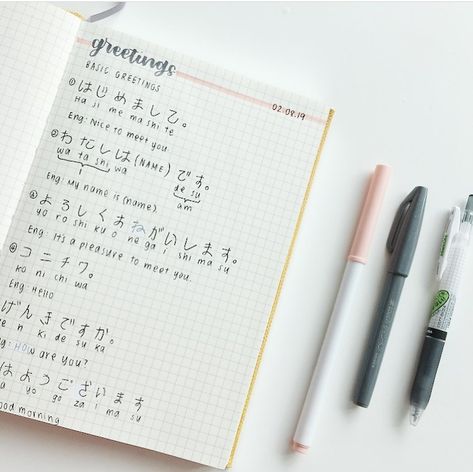 greetings
BASIC GREETINGS
02.09.19
① はじめまして。
Ha ji me ma shi te
Eng: Nice to meet you.
② わたしは (NAME) です。
wa ta shi wa de su
Eng: My name is (name) am
③ よろしくおねがいします。
yo ro shi ku o ne ga i shi ma su
Eng: It's a pleasure to meet you.
④ コニチワ。
ko ni chi wa
Eng: Hello
げんきですか。
n ki de su ka
HOW are you?
はようございます
a yo go za i ma su
ood morning